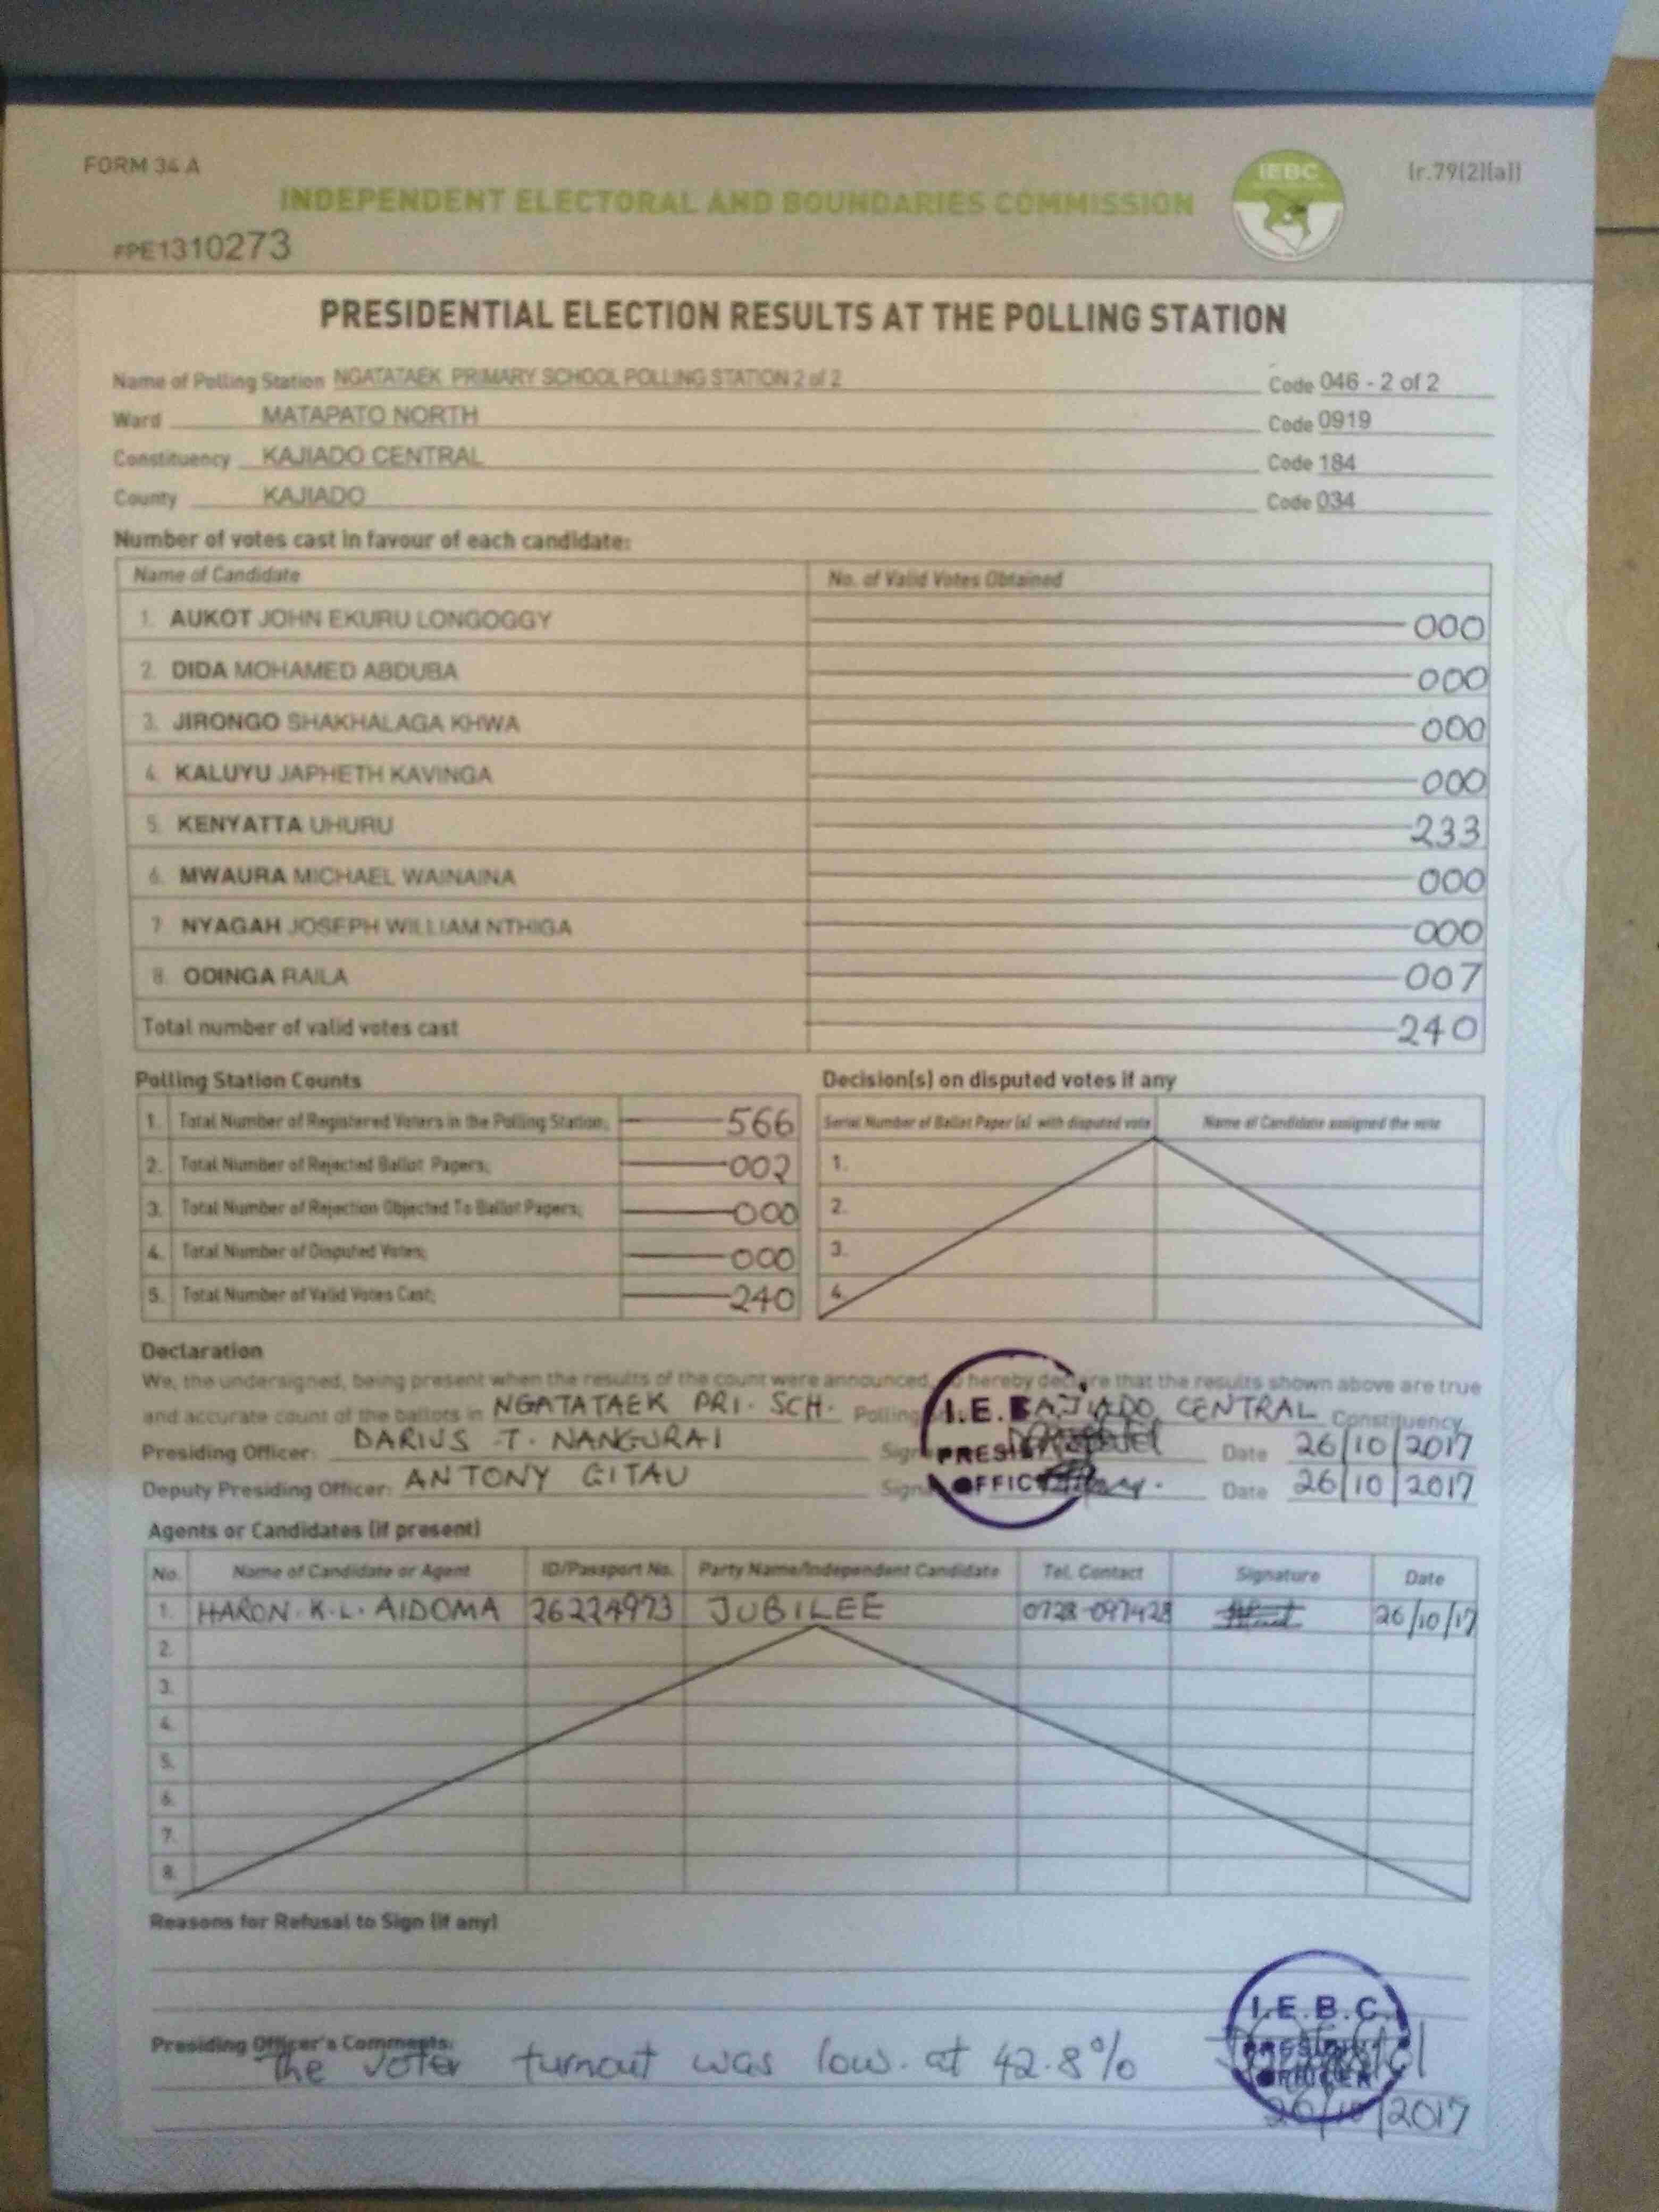 FORM 34 A
IEBC
(r.79(2)(a))
INDEPENDENT ELECTORAL AND BOUNDARIES COMMISSION
FPE1310273
PRESIDENTIAL ELECTION RESULTS AT THE POLLING STATION
Name of Polling Station NGATATAEK PRIMARY SCHOOL POLLING STATION 2 of 2 Code 046 - 2 of 2
Ward MATAPATO NORTH Code 0919
Constituency KAJIADO CENTRAL Code 184
County KAJIADO Code 034
Number of votes cast in favour of each candidate:
Name of Candidate No. of Valid Votes Obtained
1. AUKOT JOHN EKURU LONGOGGY 000
2. DIDA MOHAMED ABDUBA 000
3. JIRONGO SHAKHALAGA KHWA 000
4. KALUYU JAPHETH KAVINGA 000
5. KENYATTA UHURU 233
6. MWAURA MICHAEL WAINAINA 000
7. NYAGAH JOSEPH WILLIAM NTHIGA 000
8. ODINGA RAILA 007
Total number of valid votes cast 240
Polling Station Counts
1. Total Number of Registered Voters in the Polling Station; 566
2. Total Number of Rejected Ballot Papers; 002
3. Total Number of Rejection Objected To Ballot Papers; 000
4. Total Number of Disputed Votes; 000
5. Total Number of Valid Votes Cast; 240
Decision(s) on disputed votes if any
Serial Number of Ballot Paper (s) with disputed vote Name of Candidate assigned the vote
1.
2.
3.
4.
Declaration
We, the undersigned, being present when the results of the count were announced, do hereby declare that the results shown above are true
and accurate count of the ballots in NGATATAEK PRI. SCH. Polling KAJIADO CENTRAL Constituency
Presiding Officer: DARIUS .T. NANGURAI Date 26/10/2017
Deputy Presiding Officer: ANTONY GITAU Date 26/10/2017
I.E.B
PRESI
OFFIC
Agents or Candidates (if present)
No. Name of Candidate or Agent ID/Passport No. Party Name/Independent Candidate Tel. Contact Signature Date
1. HARON. K.L. AIDOMA 26224973 JUBILEE 0728-097428 26/10/17
2.
3.
4.
5.
6.
7.
8.
Reasons for Refusal to Sign (if any)
Presiding Officer's Comments:
The voter turnout was low. at 42.8%
I.E.B.C
PRESIDING
OFFICER
26/10/2017